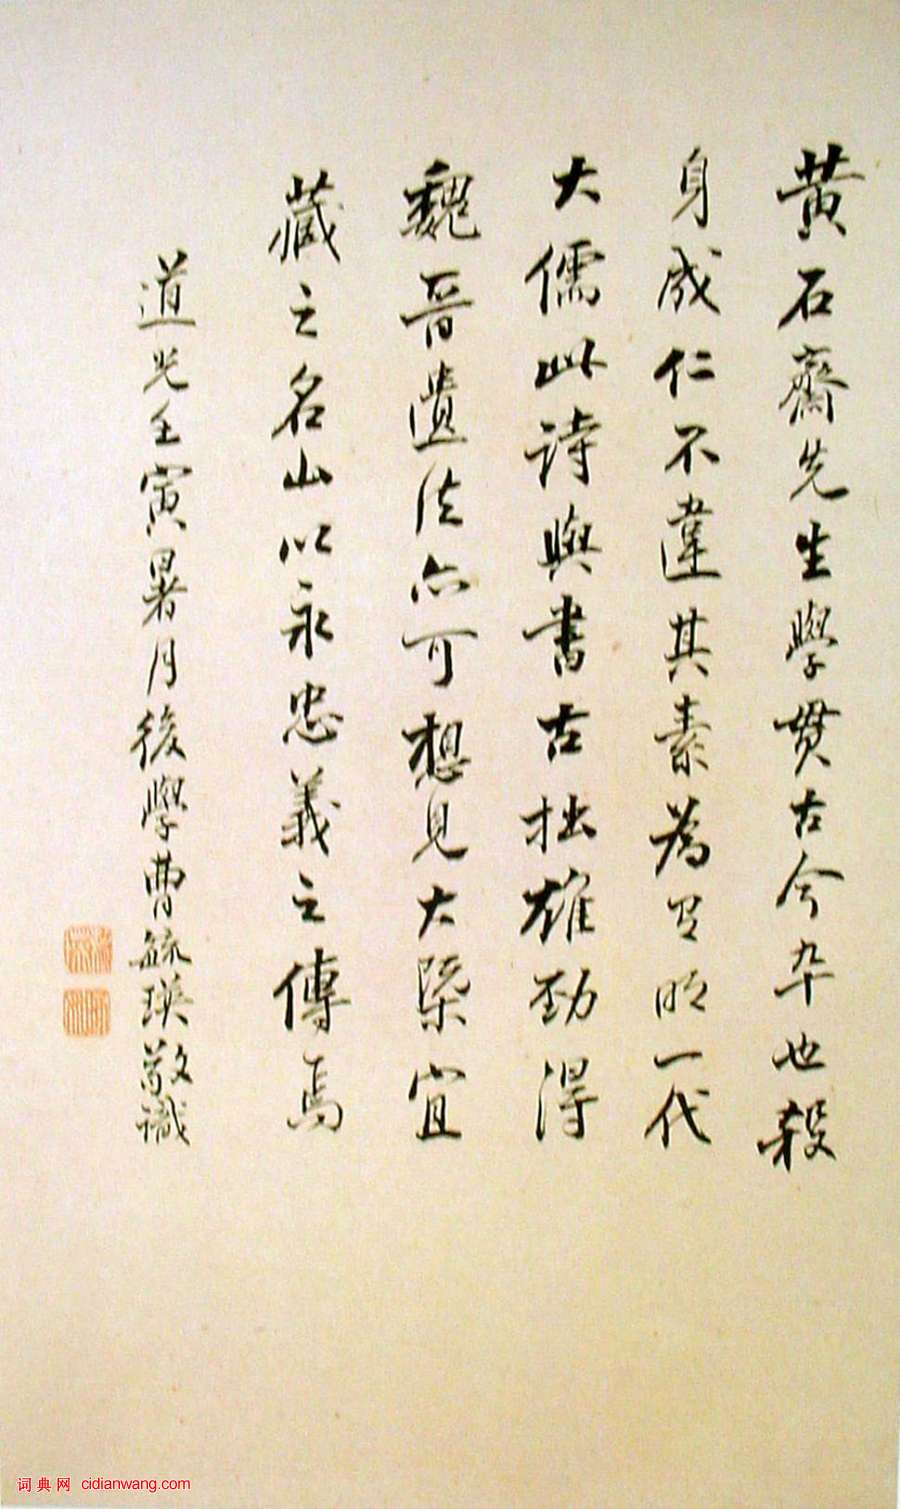 黄石齋先生學貫古今卒也殺
身成仁不違其素為有明一代
大儒此詩與書古拙雄勁得
魏晉遺法亦可想見大槩宜
藏之名山以永忠義之傳焉
道光壬寅暑月後學曹毓瑛敬識
词典网 cidianwang.com